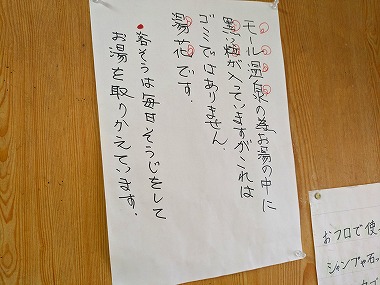 モール温泉の為お湯の中に
黒い塊が入っていますがこれは
ゴミではありません.
湯花です.
●浴そうは毎日そうじをして
お湯を取りかえています.
おフロで使っ
シャンプーや石っ